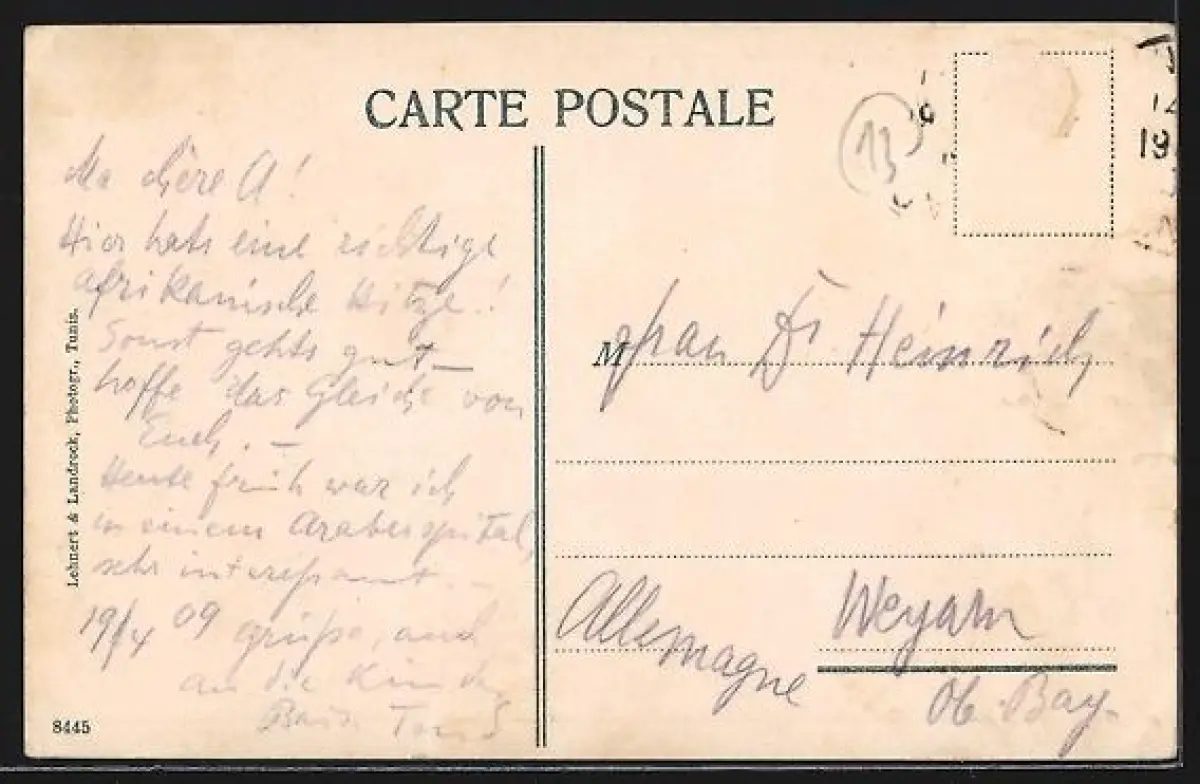 CARTE POSTALE
13
19
Ma chère A!
Hier hats eine richtige
afrikanische Hitze!
Sonst gehts gut –
hoffe das Gleiche von
Euch. –
Heute früh war ich
in einem Araberspital,
sehr interessant. –
19/4 09 Grüße, auch
an die Kinder
Frau Dr Heinrich
M
Allemagne
Weyarn
Ob. Bay.
Lehnert & Landrock, Photogr., Tunis.
8445